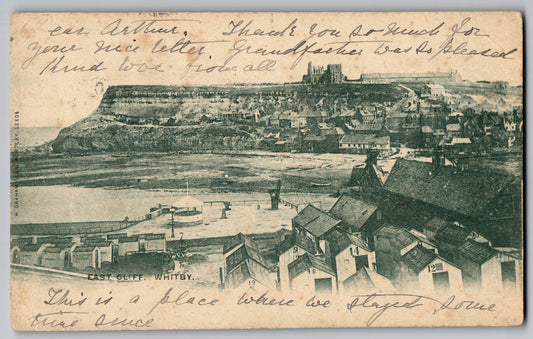 Dear Arthur. Thank you so much for
your nice letter. Grandfather was so pleased
Kind love from all
EAST CLIFF. WHITBY.
This is a place where we stayed some
time since